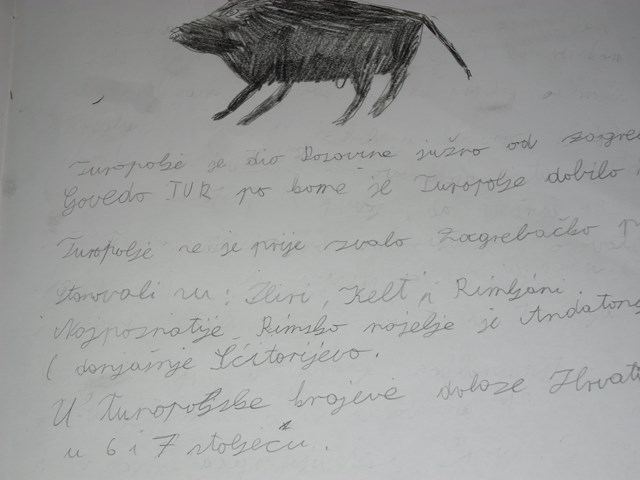 Turopolje je dio Posavine južno od zagre
Govedo TUR po kome je Turopolje dobilo
Turopolje se je prije zvalo zagrebačko
Stanovali su: Iliri, Kelti, Rimljani.
Najpoznatije Rimsko naselje je Andaton
( današnje Šćitarijevo.
U Turopoljske krajeve dolaze Hrvati
u 6 i 7 stoljeću.